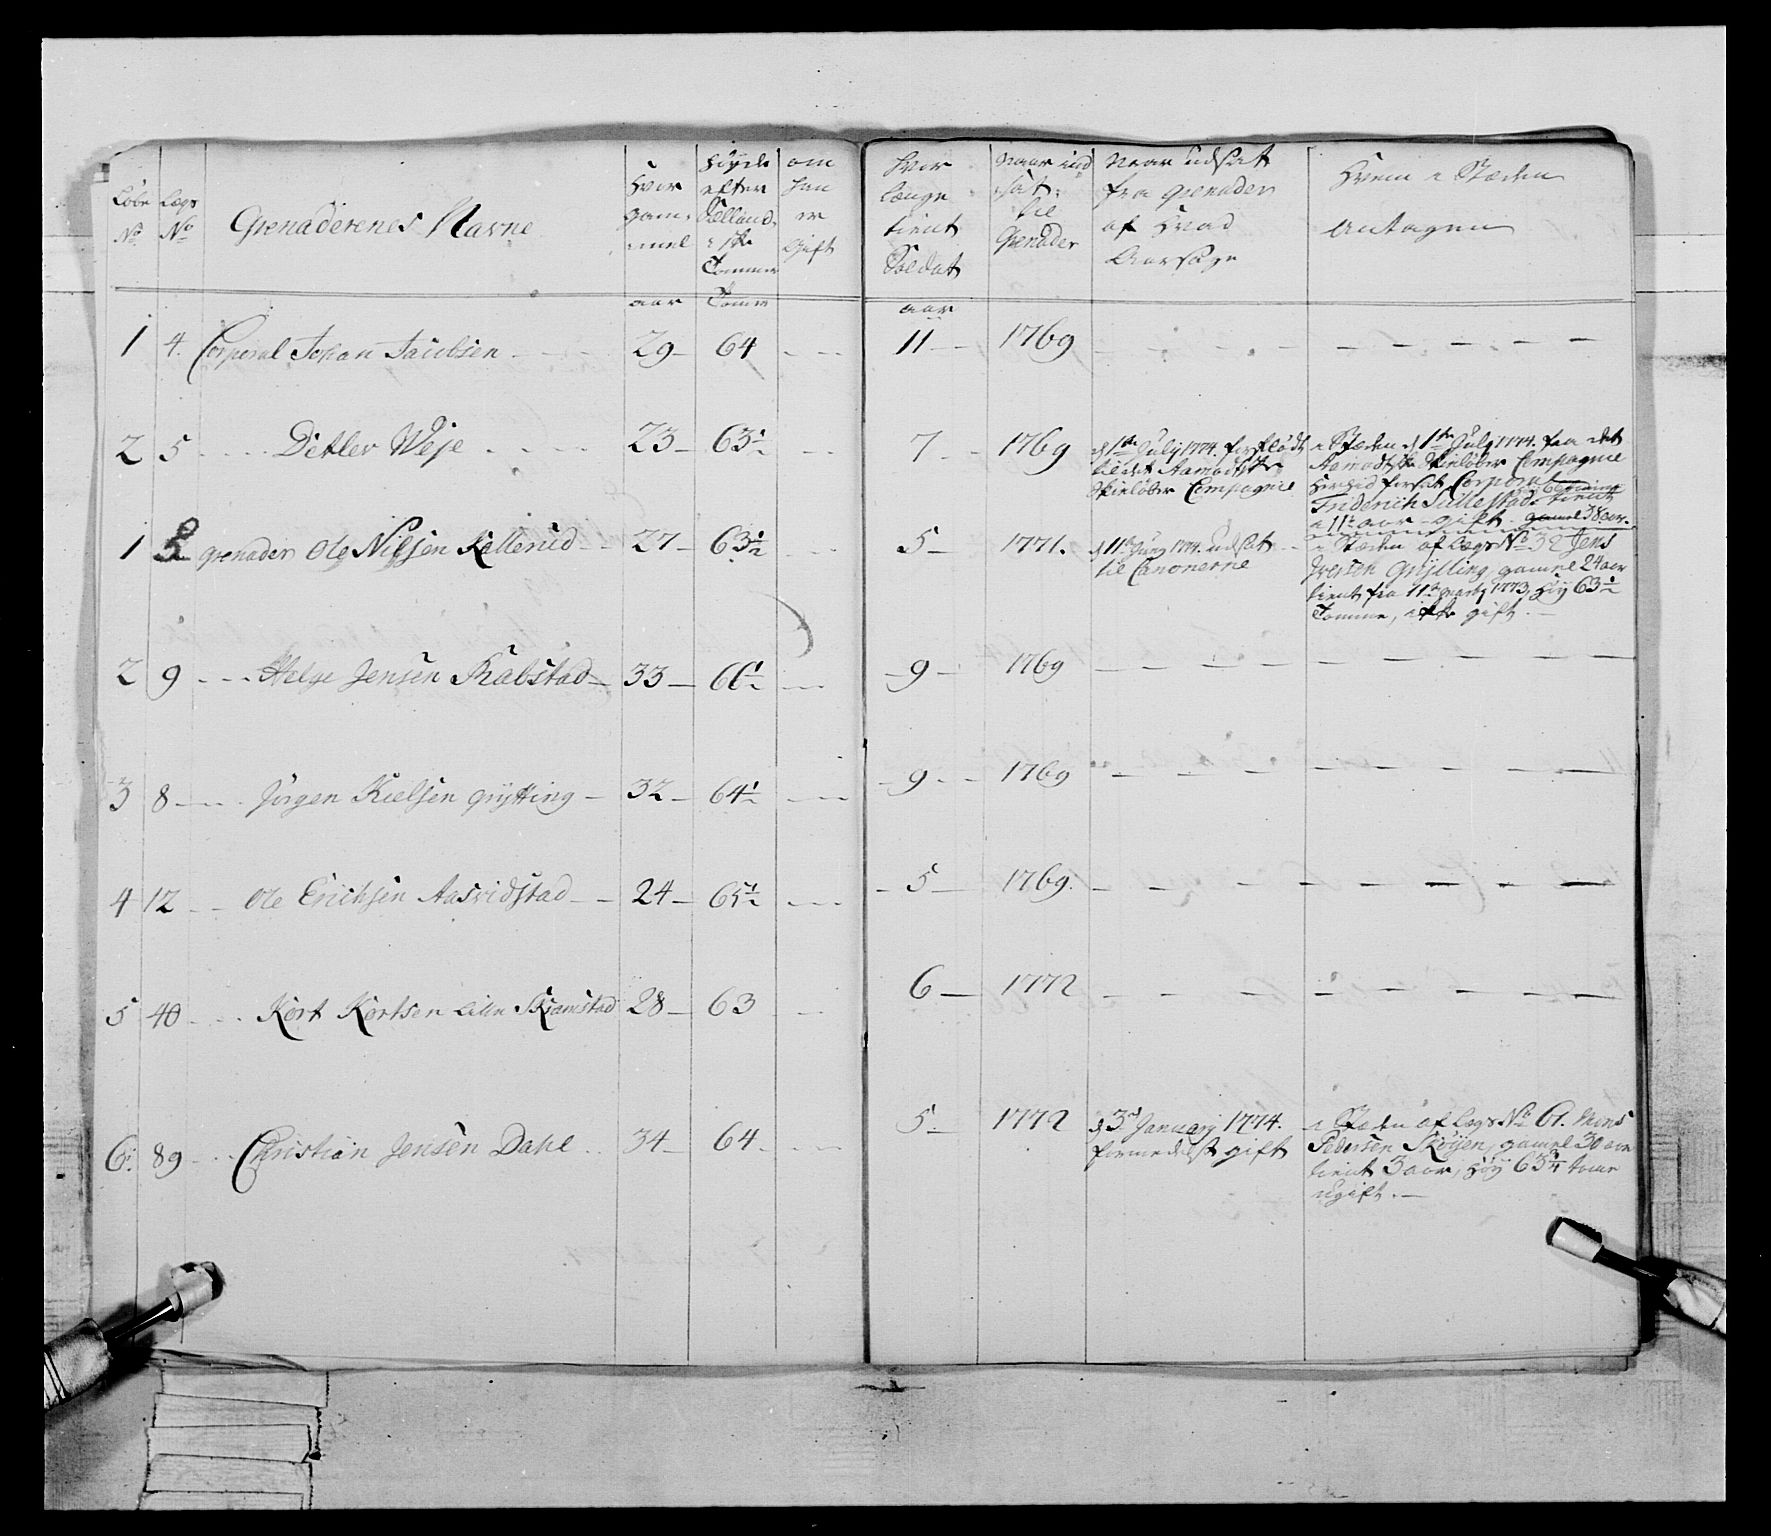 Løbe No
Lægs No
Grenaderenes Navne
Hvor gammel
aar
Høyde efter Sællandske Tommer
Tomer
om han er Gift
Hvor længe tient Soldat
aar
Naar indsat til Grenader
Naar udsat fra grenader af Hvad Aarsage
Hvem i Stæden Antagen
1 4. Corporal Johan Jacobsen 29 64 11 1769
2 5 Detlev Weje 23 63½ 7 1769
d 1ste July 1774. forflødt
til det Aamodtske
Skieløber Compagnie
i Stæden d 1ste July 1774. fra det
Aamodtske Skieløber Compagnie
Herhid forsat Corporal
Friderich Sillestad, tient
i 11t aar gift. gamel 38 aar.
1 grenader Ole Nilsen Kallerud 27 63½ 5 1771.
d 11te Juny 1774. udsat
til Canonerne
i Stæden af Lægs No 32 Jens
Iversen Grytting, gamel 24 aar
tient fra 11te Marty 1773, Høy 63½
Tomme, ikke gift.
2 9 Helge Jensen Skabstad 33 66½ 9 1769
3 8 Jørgen Kielsen Grytting 32 64½ 9 1769
4 12 Ole Erichsen Aasvidstad 24 65½ 5 1769.
5 40 Kort Kortsen Lille Skramstad 28 63 6 1772
6. 89 Christian Jensen Dahl 34 64 5 1772
d 3d January 1774.
formedelst gift
i Stæden af Lægs No 61. Mons
Pedersen Skøyen, gamel 30 aar
tient 3 aar, Høy 63¾ tomme
ugift.